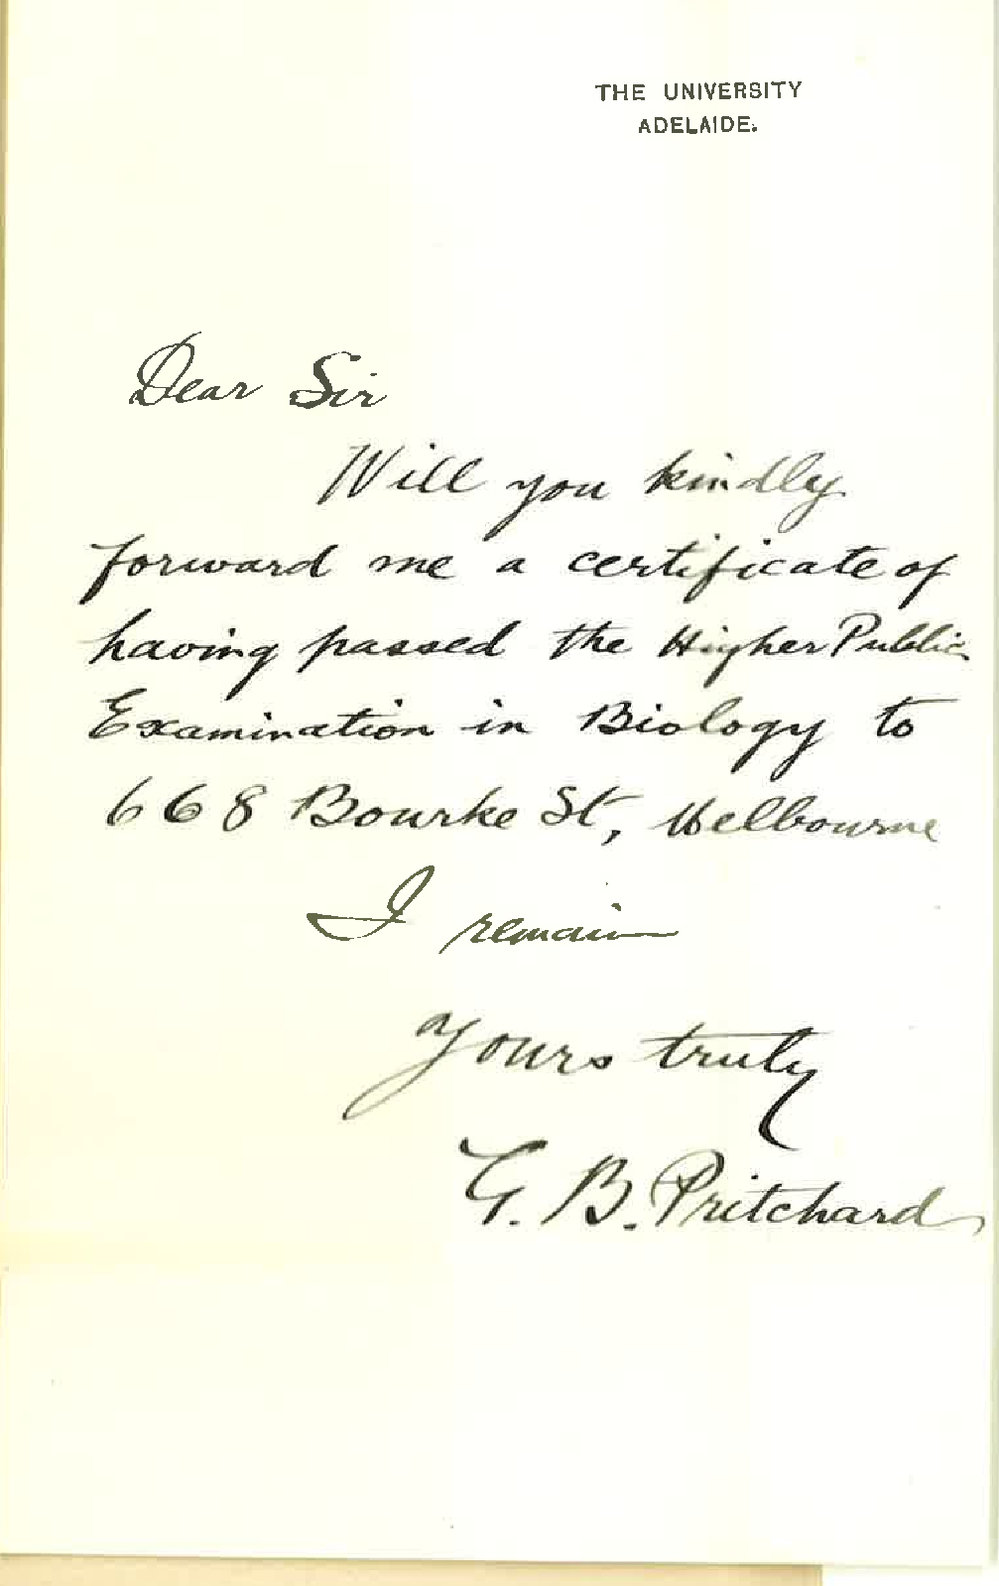 THE UNIVERSITY
ADELAIDE.
Dear Sir
Will you kindly
forward me a certificate of
having passed the Higher Public
Examination in Biology to
668 Bourke St, Melbourne
I remain
Yours truly
G. B. Pritchard